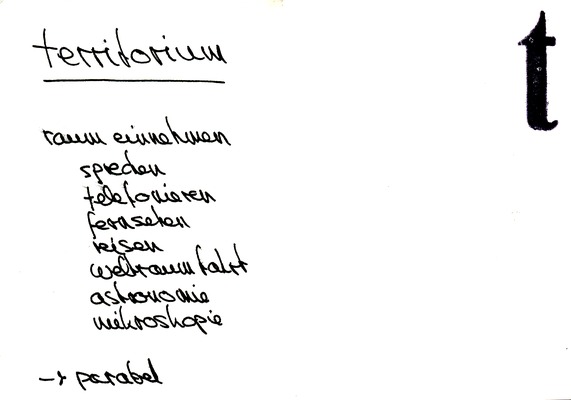 t
territorium
raum einnehmen
sprechen
telefonieren
fernsehen
reisen
weltraumfahrt
astronomie
mikroskopie
→ parabel